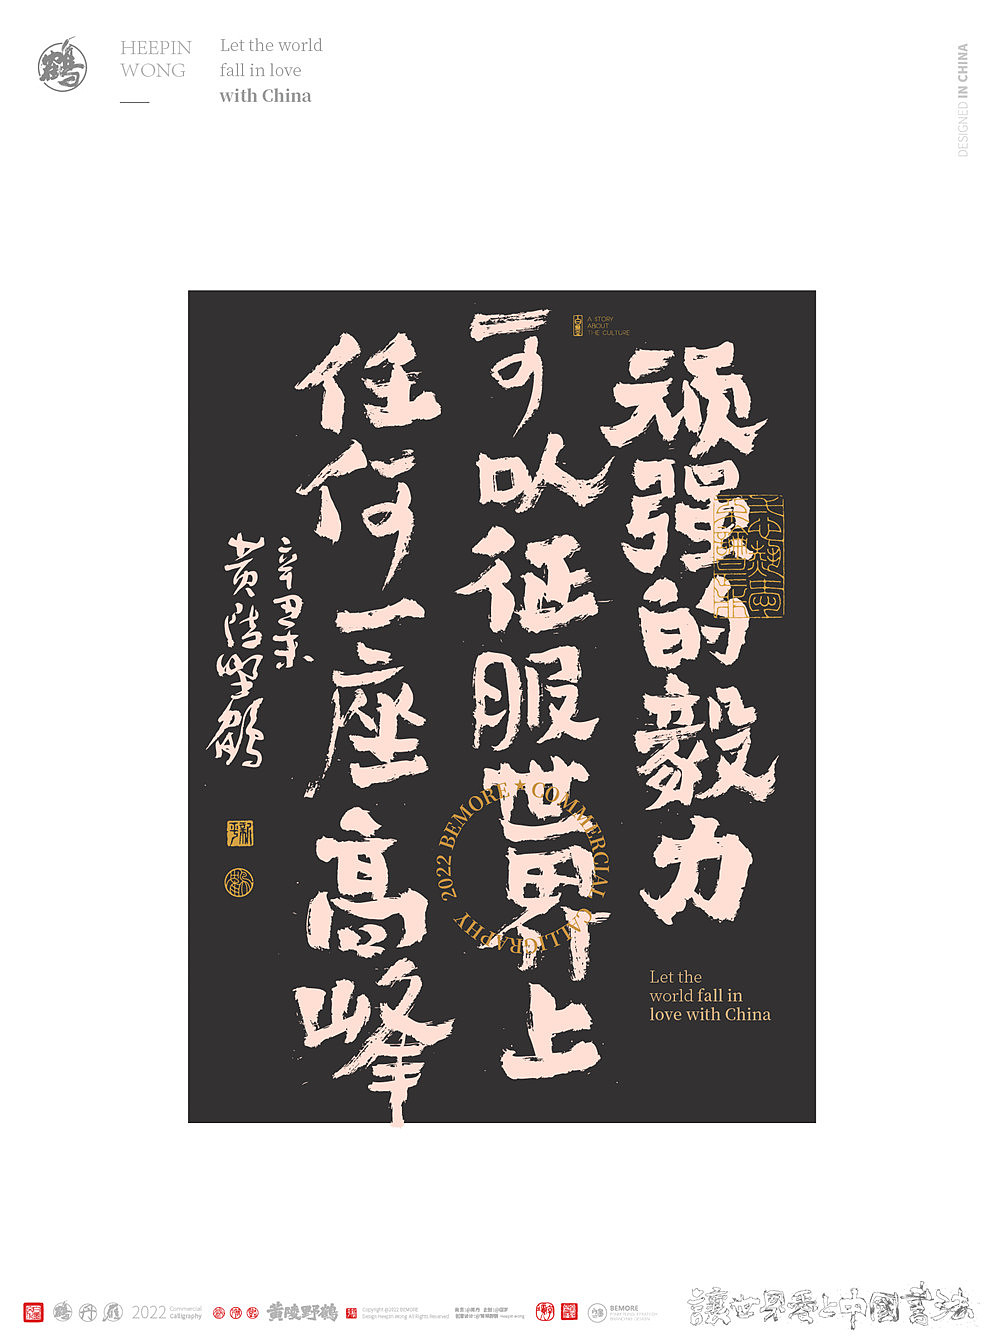 HEEPIN
WONG
Let the world
fall in love
with China
DESIGNED IN CHINA
A STORY
ABOUT
THE CULTURE
顽强的毅力
可以征服世界上
任何一座高峰
辛丑末
黄陵野鹤
2022 BEMORE ★ COMMERCIAL CALLIGRAPHY
Let the
world fall in
love with China
2022
Commercial
Calligraphy
黄陵野鹤
BEMORE
讓世界愛上中國書法